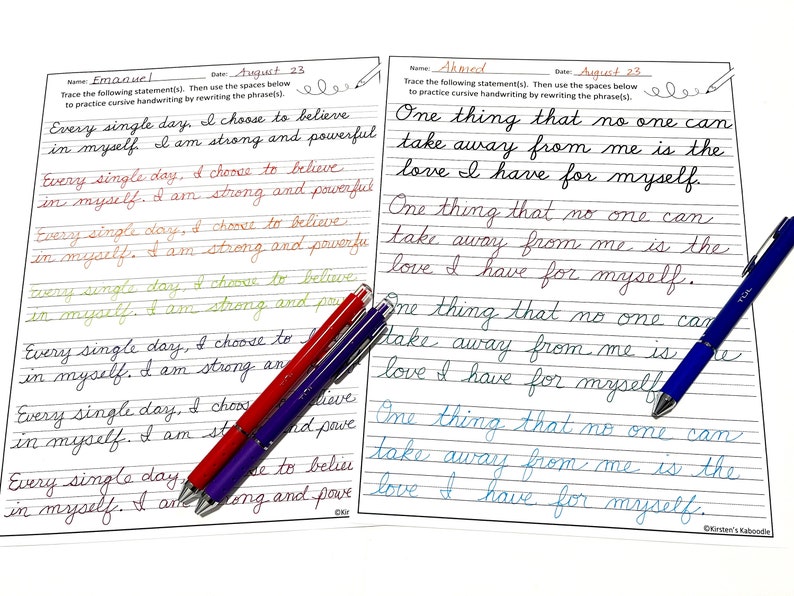 Name: Emanuel Date: August 23
Trace the following statement(s). Then use the spaces below
to practice cursive handwriting by rewriting the phrase(s).
Every single day, I choose to believe
in myself. I am strong and powerful
Every single day, I choose to believe
in myself. I am strong and powerful
Every single day, I choose to believe
in myself. I am strong and powerfu
Every single day, I choose to believe
in myself. I am strong and powe
Every single day, I choose to believe
in myself. I am strong an powe
Every single day, I choos believe
in myself. I am st powe
Every single day to believ
in myself. I am ong and powe
©Kir
Name: Ahmed Date: August 23
Trace the following statement(s). Then use the spaces below
to practice cursive handwriting by rewriting the phrase(s).
One thing that no one can
take away from me is the
love I have for myself.
One thing that no one can
take away from me is the
love I have for myself.
One thing that no one can
take away from me is he
love I have for myself
One thing that no one can
take away from me is the
love I have for myself.
©Kirsten's Kaboodle
TUL
TUL